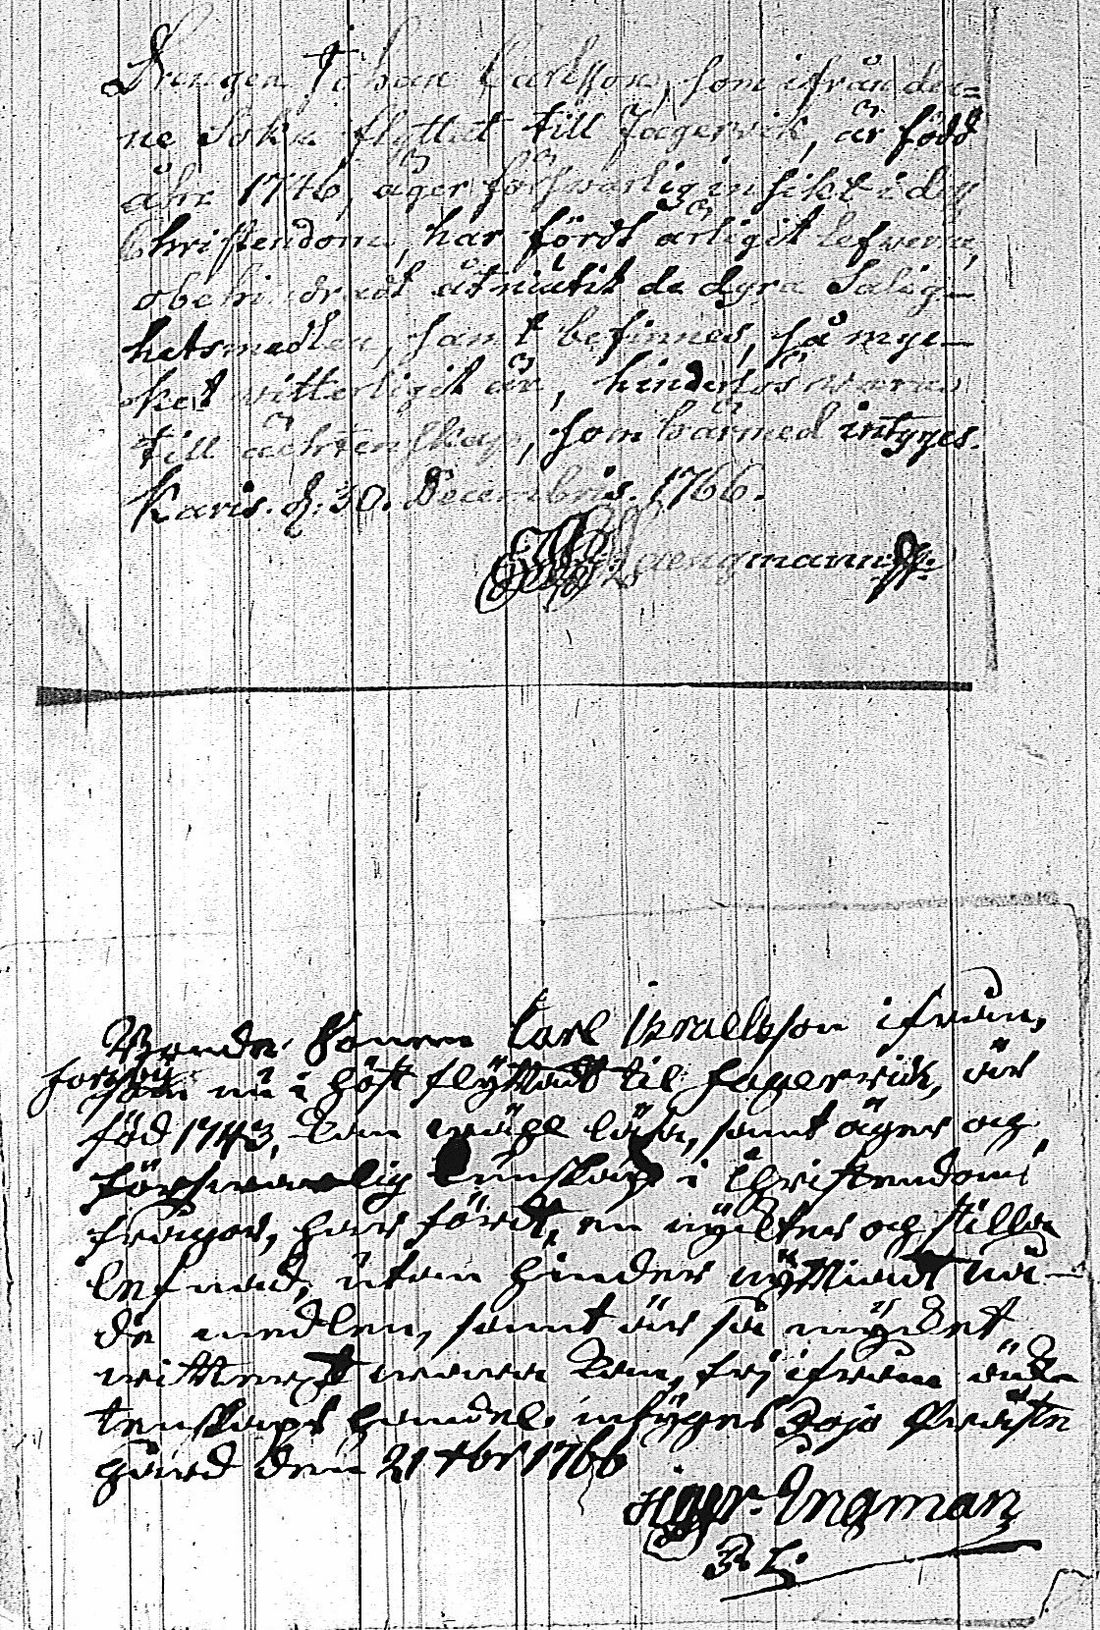 Drengen Johan Carlsson, som ifrån den=
ne Sokn flyttat till Fagerwik, är född
åhr 1746, äger förswarlig insikt i dess
Christendom, har fördt ärligit lefwerne,
obehindradt åtniutit de dyra Salig-
hetsmedlen, samt befinnes, så myc-
ket witterligit är, hinderlös wara
till ächtenskap, som härmed intyges.
Karis. d. 30. Decembris. 1766.
aengmann
Bonde Sonen Carl Israelsson ifrån,
som nu i höst flyttadt til Fagerwik, är
föd 1743, kan wäl läsa, samt äger og
förswarlig kunskap i Christendoms
frågor, har fördt en nyckter og stilla
lefnad, utan hinder nyttiadt nå-
de medlen, samt är så mycket
witterligt wara kan, frij ifrån äkten
tenskaps handel, intyges Lojo Präste
gård den 21 xbr 1766
Ingman